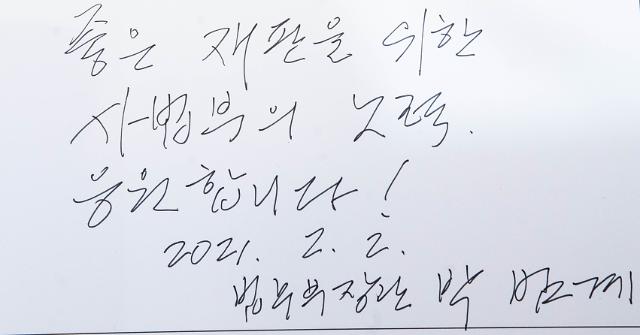 좋은 재판을 위한
사법부의 노력.
응원합니다!
2021. 2. 2.
법무부장관 박범계